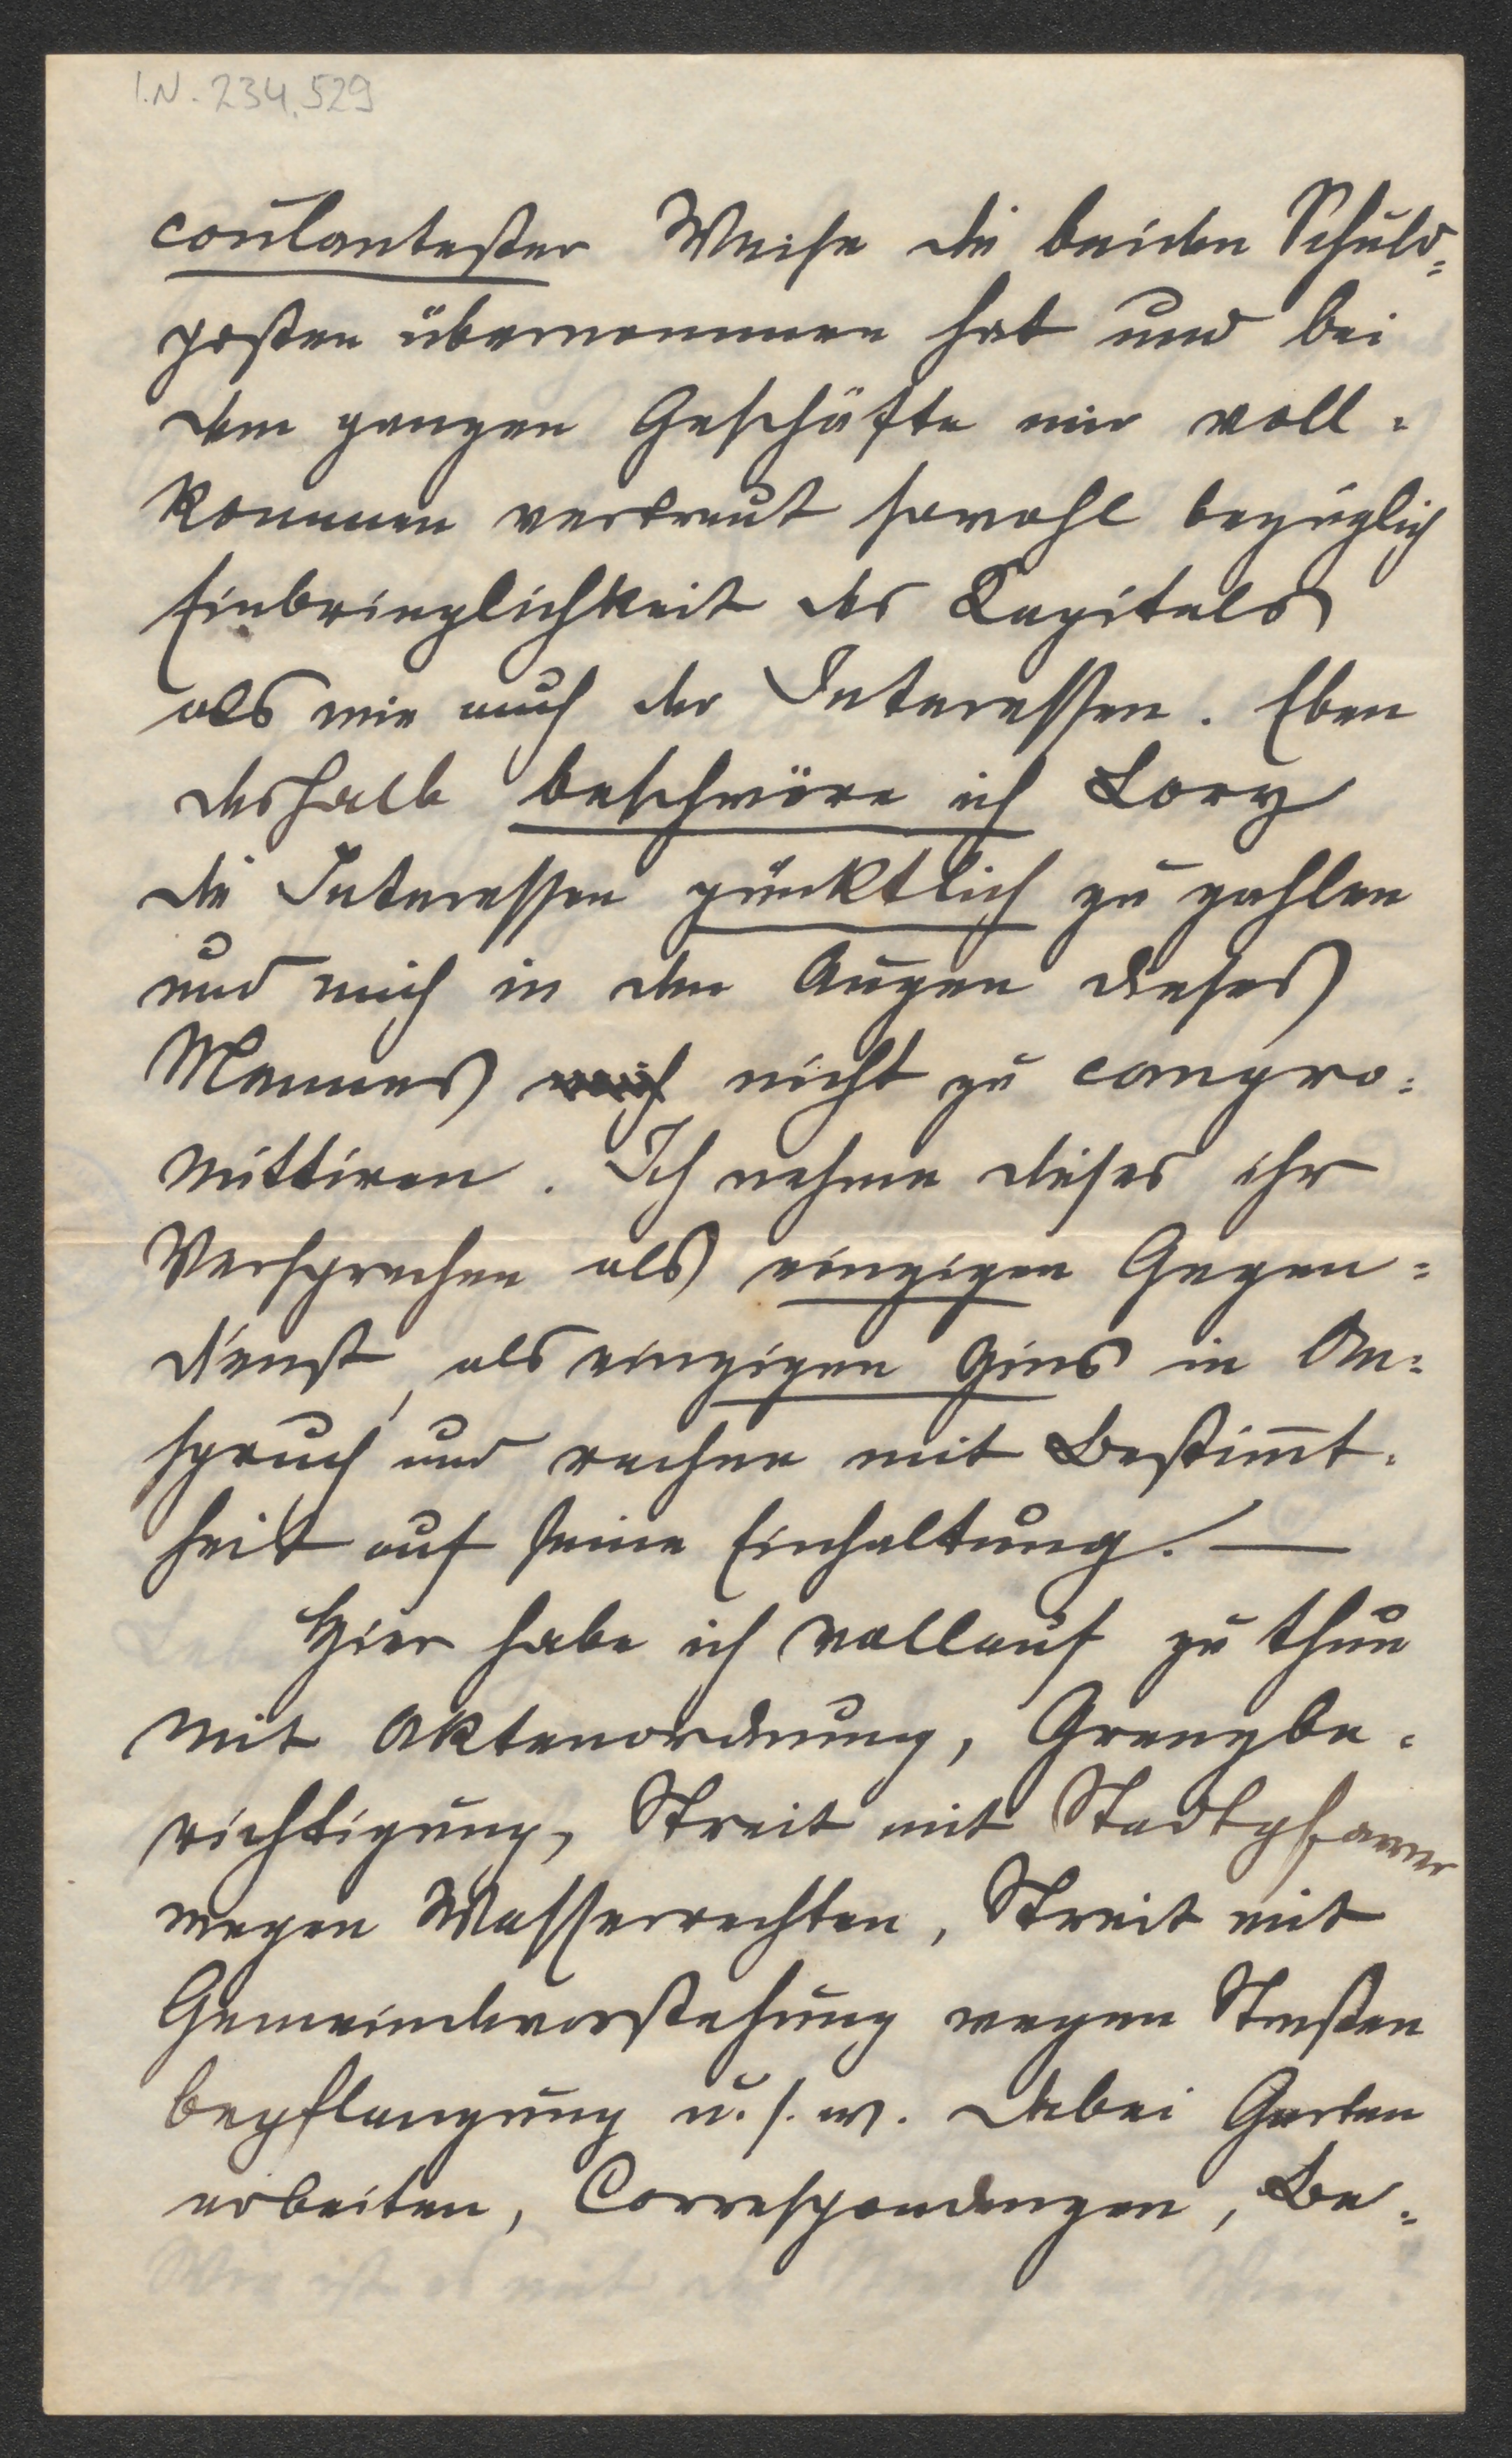 I.N. 234.529
coulantester Weise die beiden Schuld=
posten übernommen hat und bei
dem ganzen Geschäfte mir voll=
kommen vertraut sowohl bezüglich
Einbringlichkeit des Capitals
als wie auch der Interessen. Eben
deshalb beschwöre ich Lory
die Interessen pünktlich zu zahlen
und mich in den Augen dieses
Mannes mich nicht zu compro=
mittiren. Ich nehme dieses ihr
Versprechen als einzigen Gegen=
dienst, als einzigen Zins in An=
spruch und rechne mit Bestim̅t=
heit auf seine Einhaltung. —
Hier habe ich vollauf zu thun
mit Aktenordnung, Grenzbe=
richtigung, Streit mit Stadtpfarrer
wegen Wasserrechten, Streit mit
Gemeindevorstehung wegen Straßen
bepflanzung u. s. w. dabei Garten
arbeiten, Correspondenzen, Be=